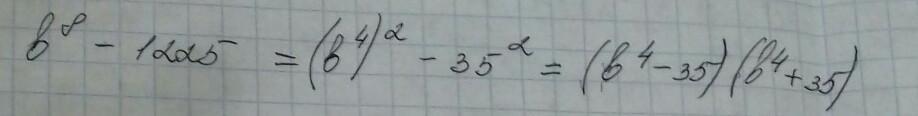 b⁸ - 1225 = (b⁴)² - 35² = (b⁴ - 35)(b⁴ + 35)